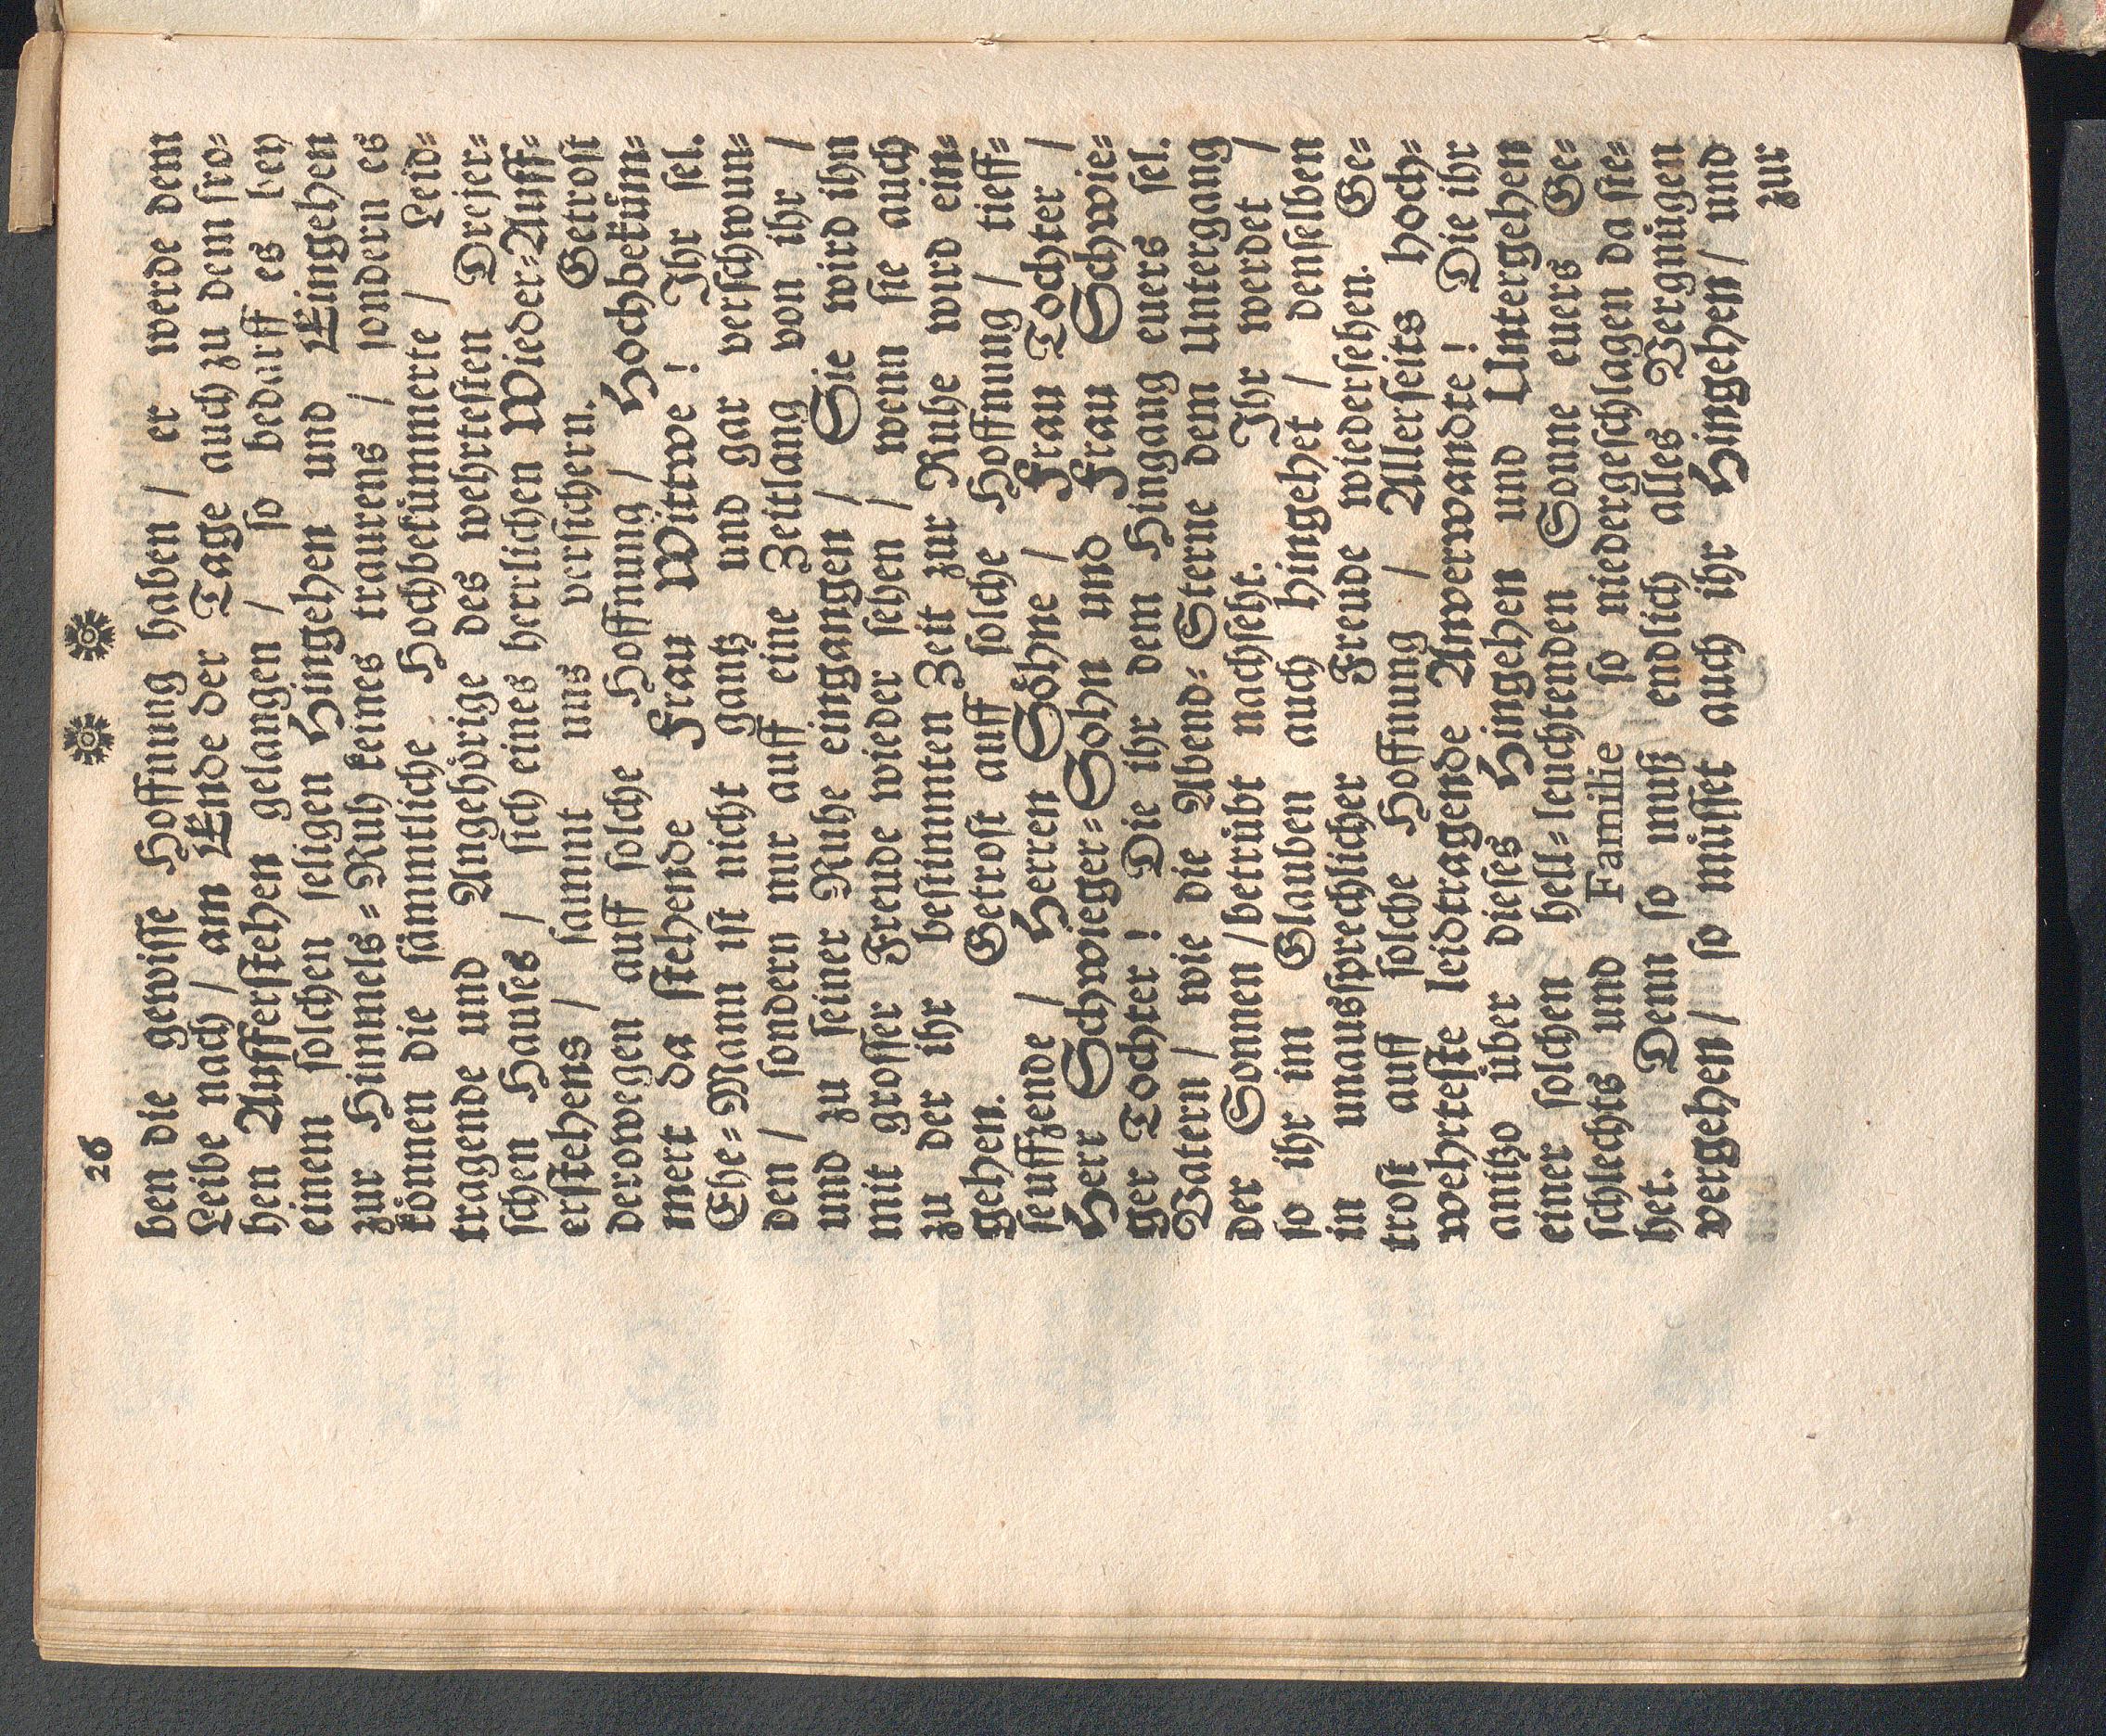 26
ben die gewisse Hoffnung haben / er werde dem
Leibe nach / am Ende der Tage auch zu dem fro-
hen Aufferstehen gelangen / so bedarff es bey
einem solchen seligen Hingehen und Eingehen
zur Himmels-Ruh keines traurens / sondern es
können die sämmtliche Hochbekümmerte / Leid-
tragende und Angehörige des wehrtesten Drejer-
schen Hauses / sich eines herrlichen Wieder-Auff-
erstehens / sammt uns versichern. Getrost
derowegen auff solche Hoffnung / Hochbeküm-
mert da stehende Frau Wittwe! Ihr sel.
Ehe-Mann ist nicht gantz und gar verschwun-
den / sondern nur auff eine Zeitlang von ihr /
und zu seiner Ruhe eingangen / Sie wird ihn
mit grosser Freude wieder sehen / wenn sie auch
zu der ihr bestimmten Zeit zur Ruhe wird ein-
gehen. Getrost auff solche Hoffnung / tieff-
seuffzende / Herren Söhne / Frau Tochter /
Herr Schwieger-Sohn und Frau Schwie-
ger Tochter! Die ihr dem Hingang euers sel.
Vatern / wie die Abend-Sterne dem Untergang
der Sonnen / betrübt nachseht. Ihr werdet /
so ihr im Glauben auch hingehet / denselben
in unaussprechlicher Freude wiedersehen. Ge-
trost auff solche Hoffnung / Allerseits hoch-
wehrteste leidtragende Anverwandte! Die ihr
anitzo über dieses Hingehen und Untergehen
einer solchen hell-leuchtenden Sonne euers Ge-
schlechts und Familie so niedergeschlagen da ste-
het. Denn so muß endlich alles Vergnügen
vergehen / so müsset auch ihr Hingehen / und
zur